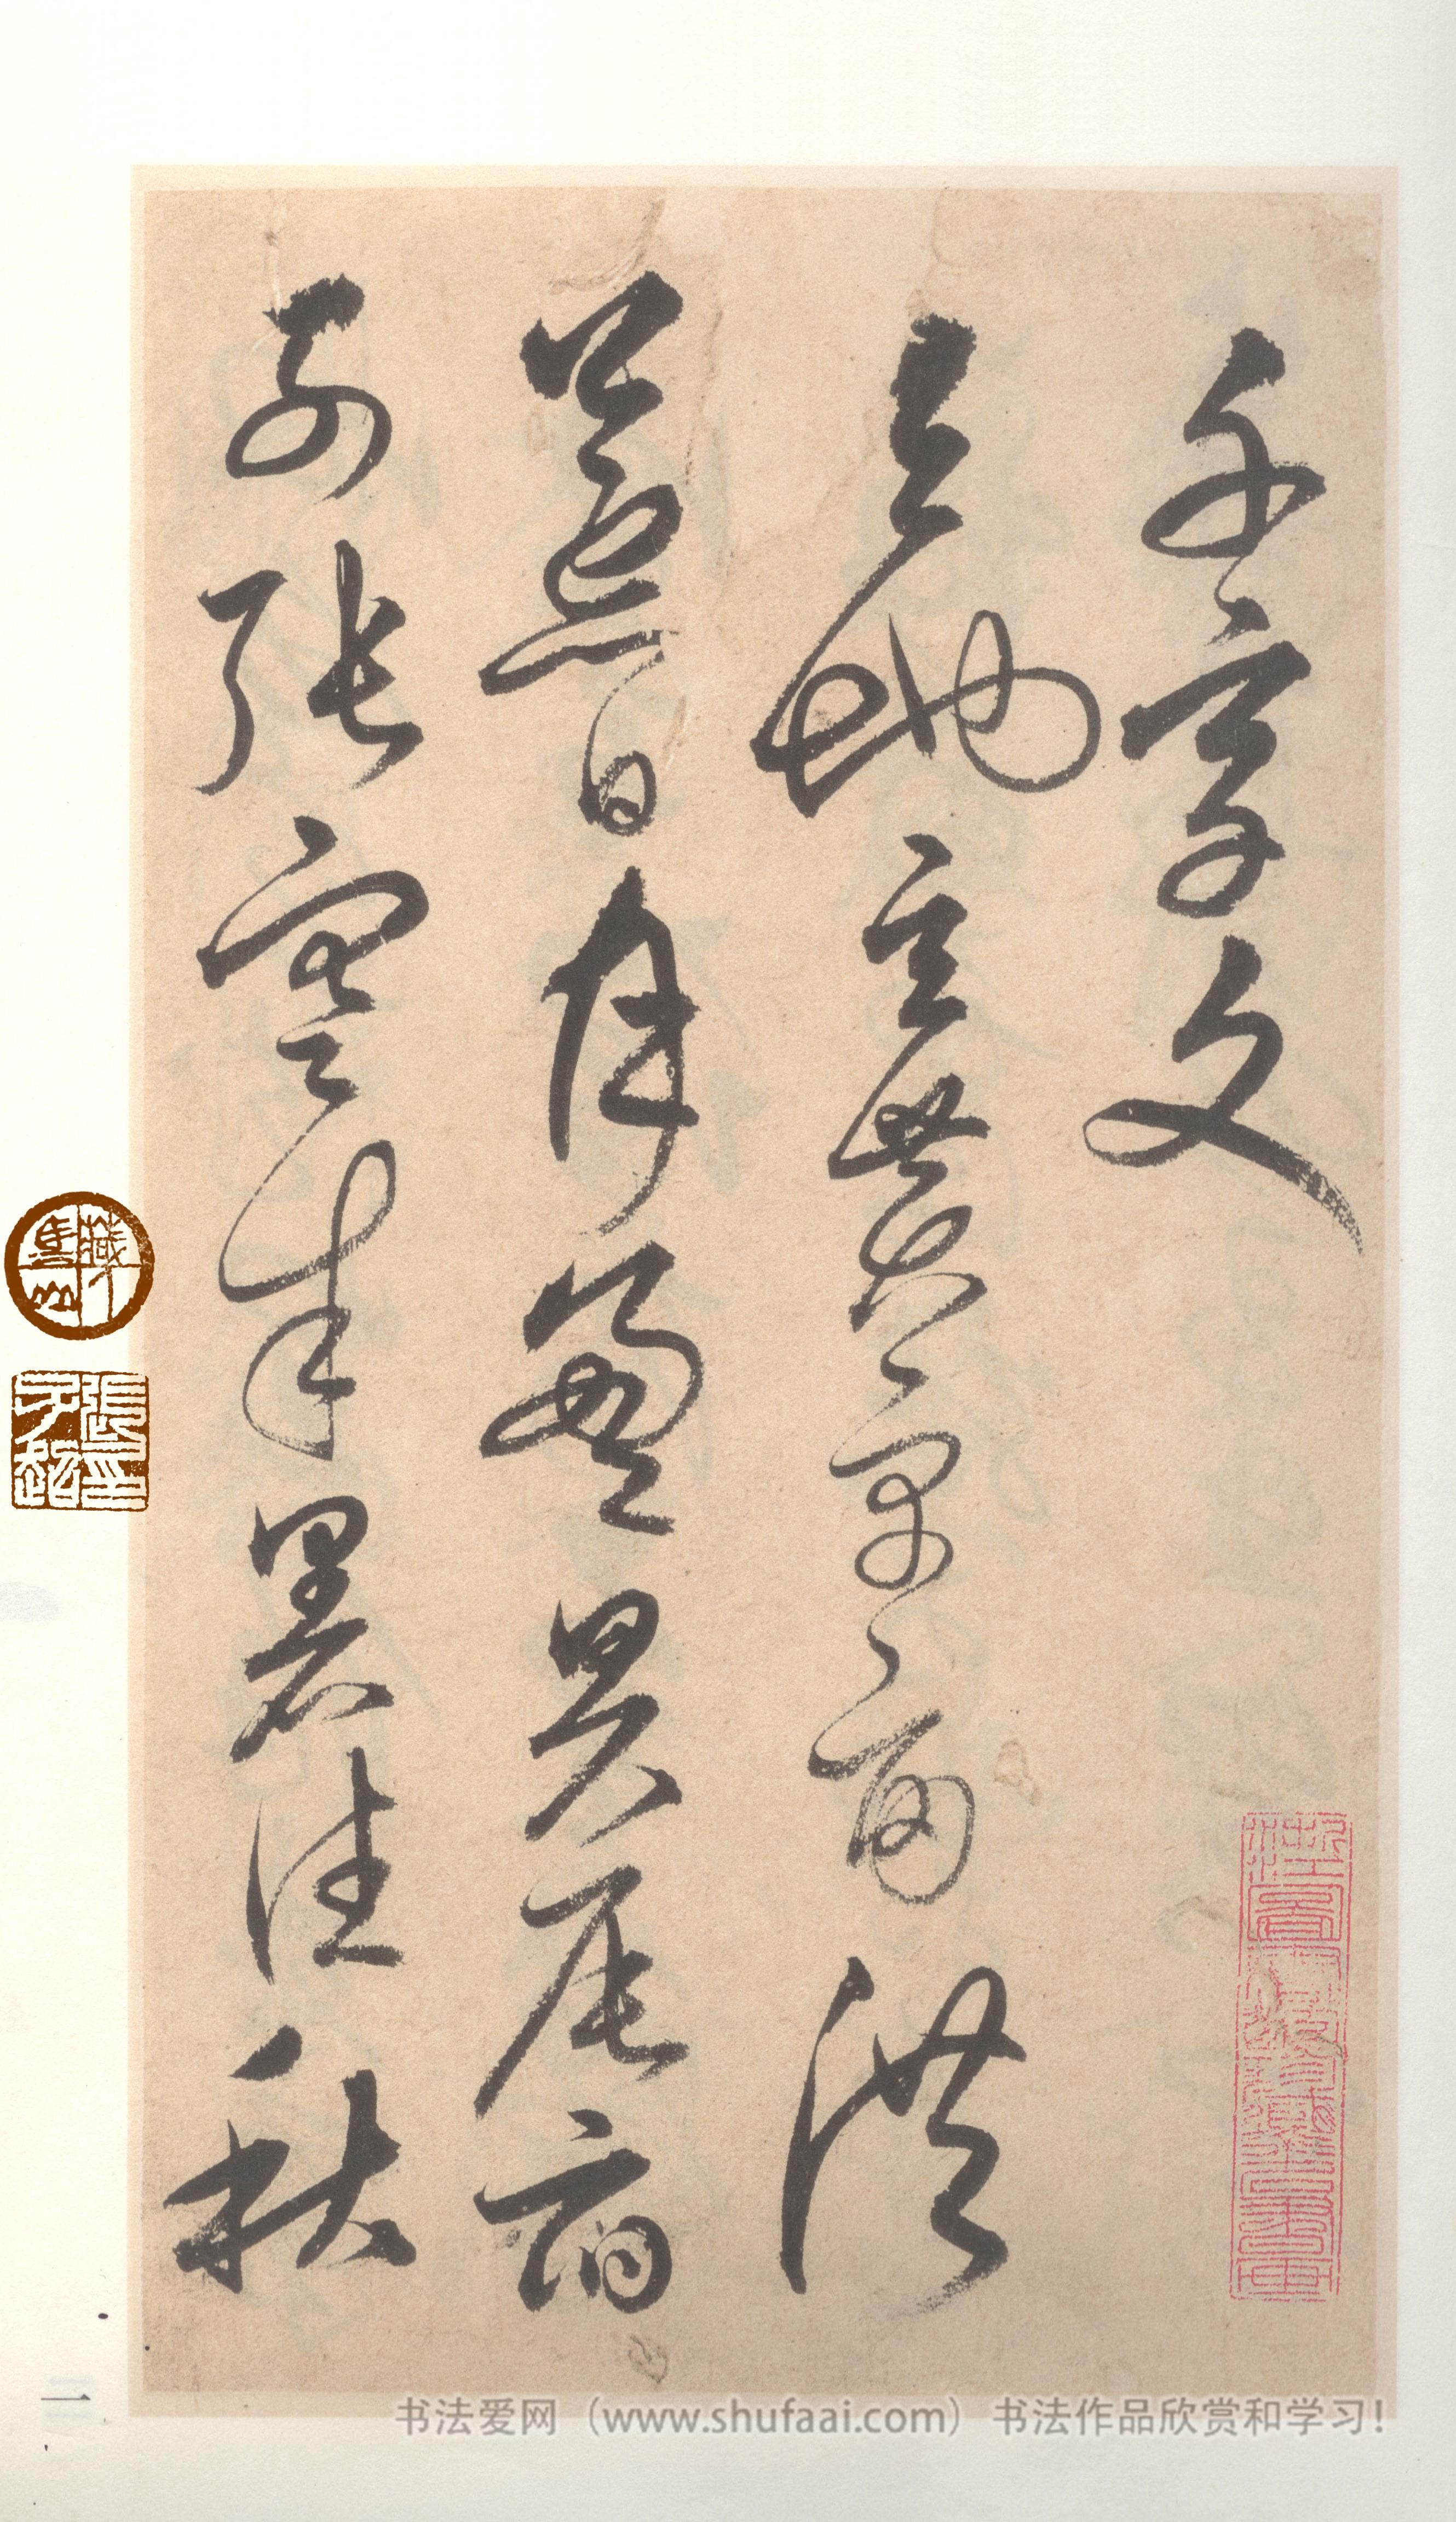 千字文
天地玄黄宇宙洪
荒日月盈昃辰宿
列张寒来暑往秋
二
书法爱网（www.shufaai.com）书法作品欣赏和学习！